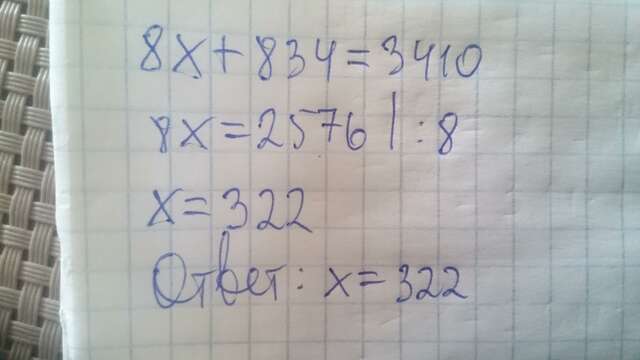 8x+834=3410
8x=2576 | :8
x=322
Ответ: x=322